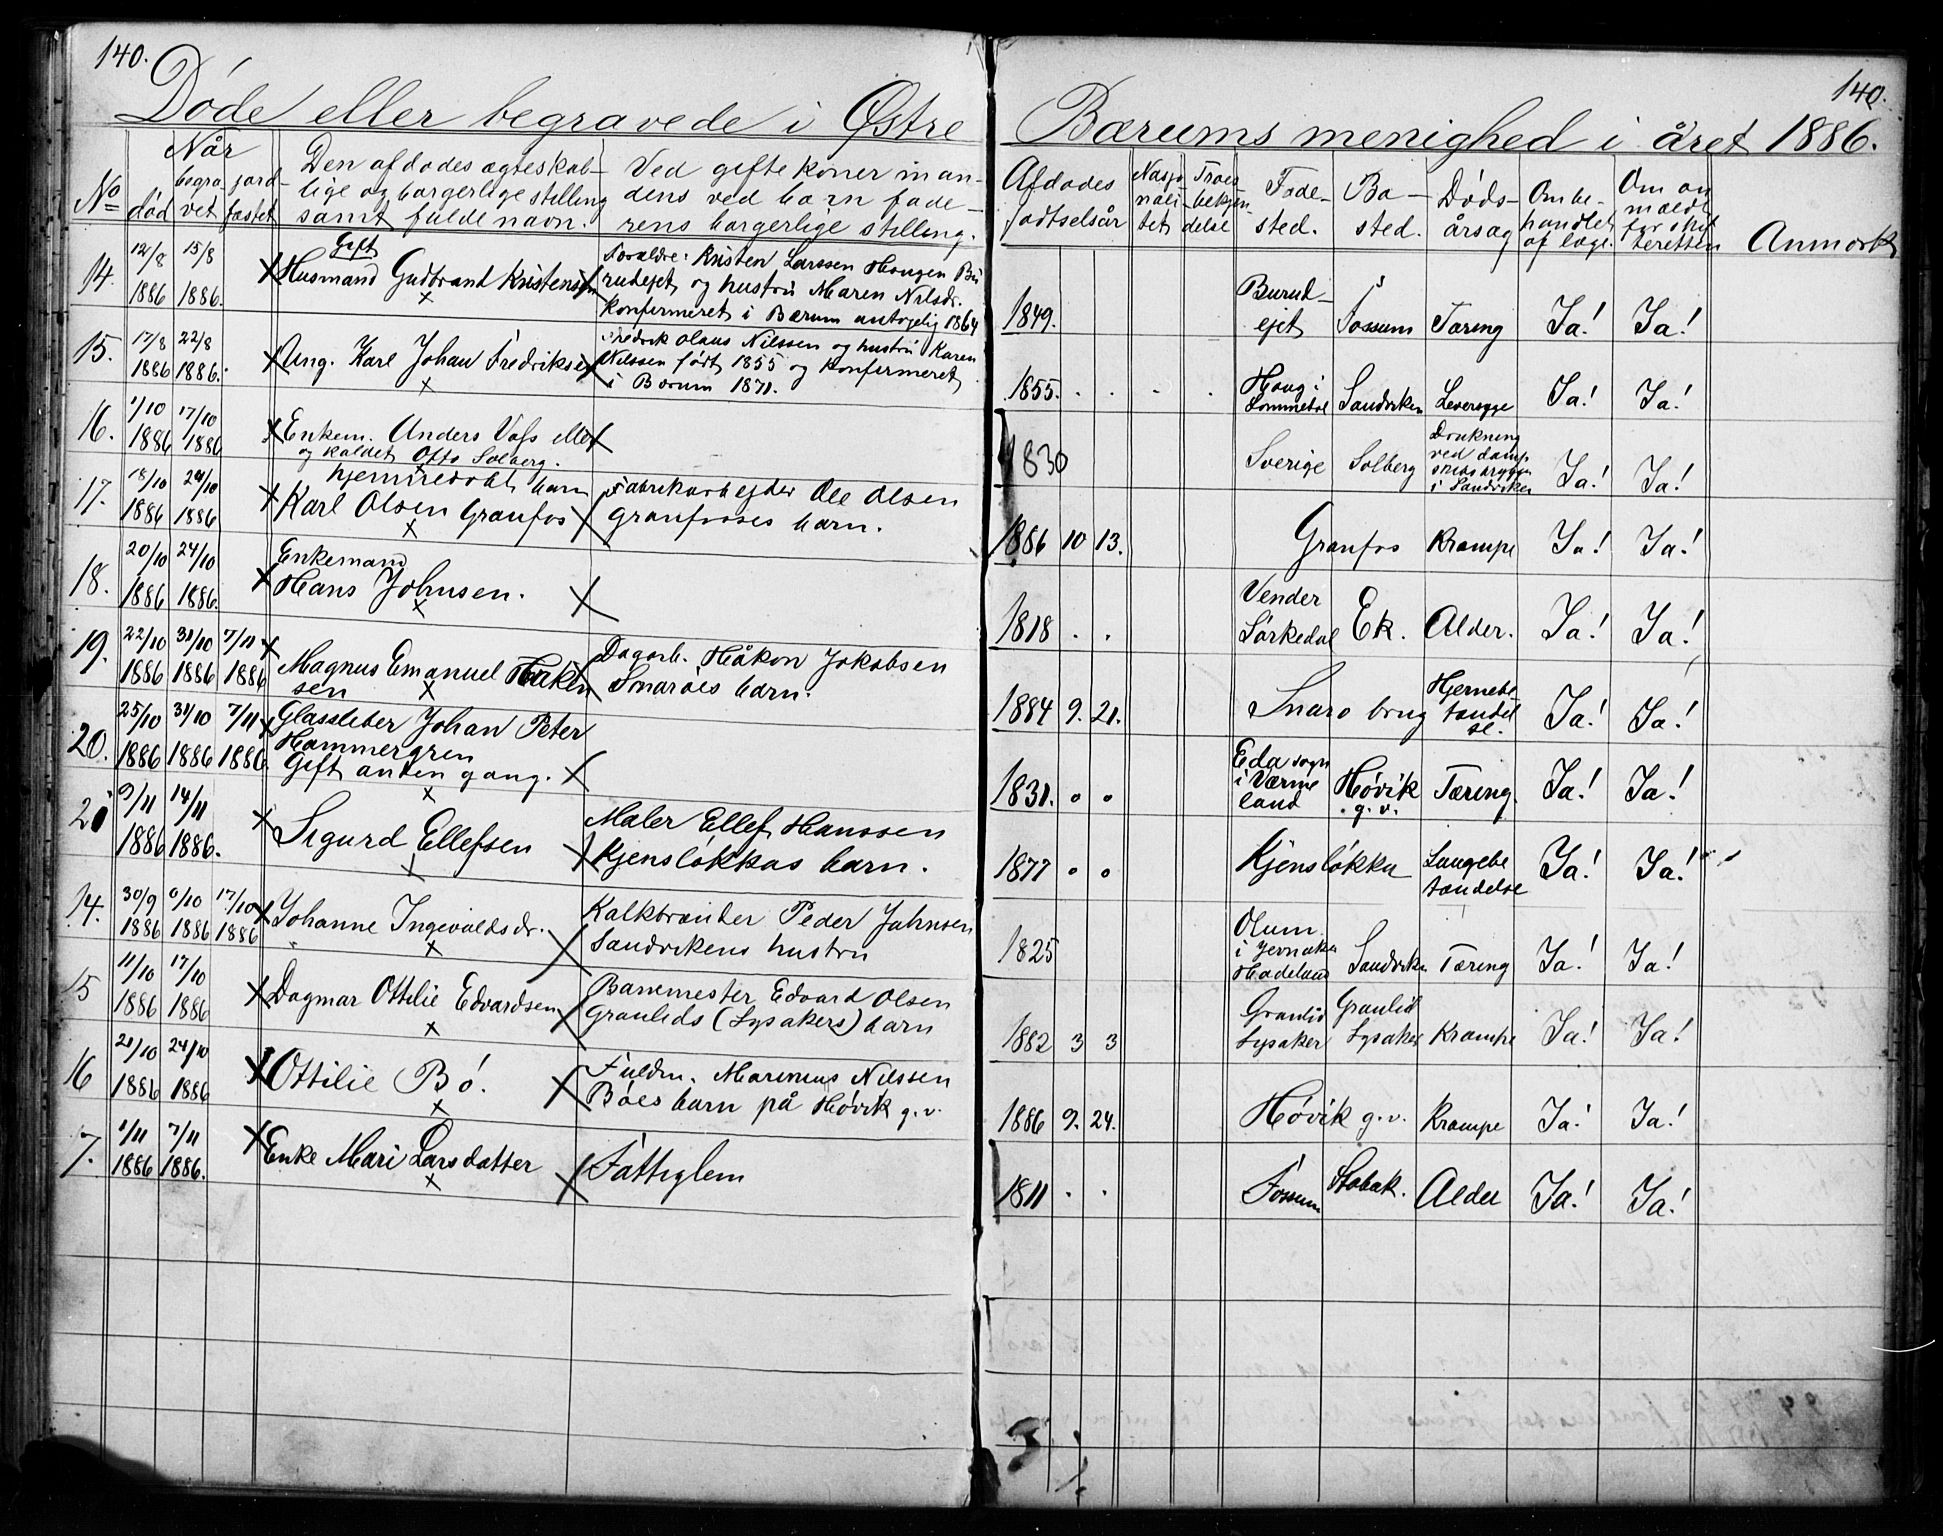 140.
140.
Døde eller begravede i Østre
Bærums menighed i året 1886.
No
Når
død
begravet
jordfæstet
Den afdødes ægteskab-
lige og borgerlige stilling
samt fulde navn.
Ved gifte koner man-
dens ved barn fade-
rens borgerlige stilling.
Afdødes
fødselsår
Nasjo-
nali-
tet
Troes-
bekjen-
delse
Føde-
sted.
Bo-
sted.
Døds-
årsag
Om be-
handlet
af læge.
Om an
meldt
for skif
teretten
Anmærk
14. 12/8 1886 15/8 1886.
Gift
Husmand Gudbrand Kristensen
Forældre: Kristen Larssen Haugen Bu
rudejet og hustru Maren Nilsdr.
konfirmeret i Bærum antagelig 1864
1849.
Burud-
ejet
Fossum
Tæring
Ja!
Ja!
15. 17/8 1886 22/8 1886.
Ung. Karl Johan Fredriksen
Fredrik Olaus Nilssen og hustru Karen
Nilssen født 1855 og konfirmeret
i Bærum 1871.
1855.
Haug i
Lommedal
Sandviken
Leversyge
Ja!
Ja!
16. 1/10 1886 17/10 1886
Enkem. Anders Vass elle
og kaldet Otto Solberg.
1830
Sverige
Solberg
Drukning
ved damp
skibsbryggen
i Sandviken
Ja!
Ja!
17. 18/10 1886 24/10 1886
hjemmedøbt barn
Karl Olsen Granfos
Fabrikarbejder Ole Olsen
Granfosses barn.
1886 10 13.
Granfos
Krampe
Ja!
Ja!
18. 20/10 1886 24/10 1886.
Enkemand
Hans Johnsen.
1818
Vender
Sørkedal
Ek.
Alder.
Ja!
Ja!
19. 22/10 1886 31/10 1886 7/11 1886
Magnus Emanuel Håken
sen
Dagarb. Håkon Jakobsen
Snarøes barn.
1884 9. 21.
Snarø brug
Hjernebe-
tændel
se.
Ja!
Ja!
20. 25/10 1886 31/10 1886 7/11 1886.
Glassleber Johan Peter
Hammergren
Gift anden gang.
1831.
Eda sogn
i Værme
land
Høvik
g. v.
Tæring.
Ja!
Ja!
21 9/11 1886 14/11 1886.
Sigurd Ellefsen
Maler Ellef Hanssen
Kjensløkkas barn.
1877
Kjensløkka
Lungebe
tændelse
Ja!
Ja!
14. 30/9 1886 9/10 1886 17/10 1886
Johanne Ingevaldsdr.
Kalkbrænder Peder Johnsen
Sandvikens hustru
1825
Olum
i Jevnaker
Hadeland
Sandviken
Tæring
Ja!
Ja!
15 11/10 1886 17/10 1886
Dagmar Ottilie Edvardsen
Banemester Edvard Olsen
Granlids (Lysakers) barn
1882 3 3
Granlid
Lysaker
Granlid
Lysaker
Krampe
Ja!
Ja!
16 21/10 1886 24/10 1886
Ottilie Bø.
Fuldm. Marenius Nilssen
Bøes barn på Høvik g. v.
1886 9. 24.
Høvik g. v.
Krampe
Ja!
Ja!
7. 1/11 1886 7/11 1886.
Enke Mari Larsdatter
Fattiglem
1811
Fossum
Stabæk.
Alder
Ja!
Ja!